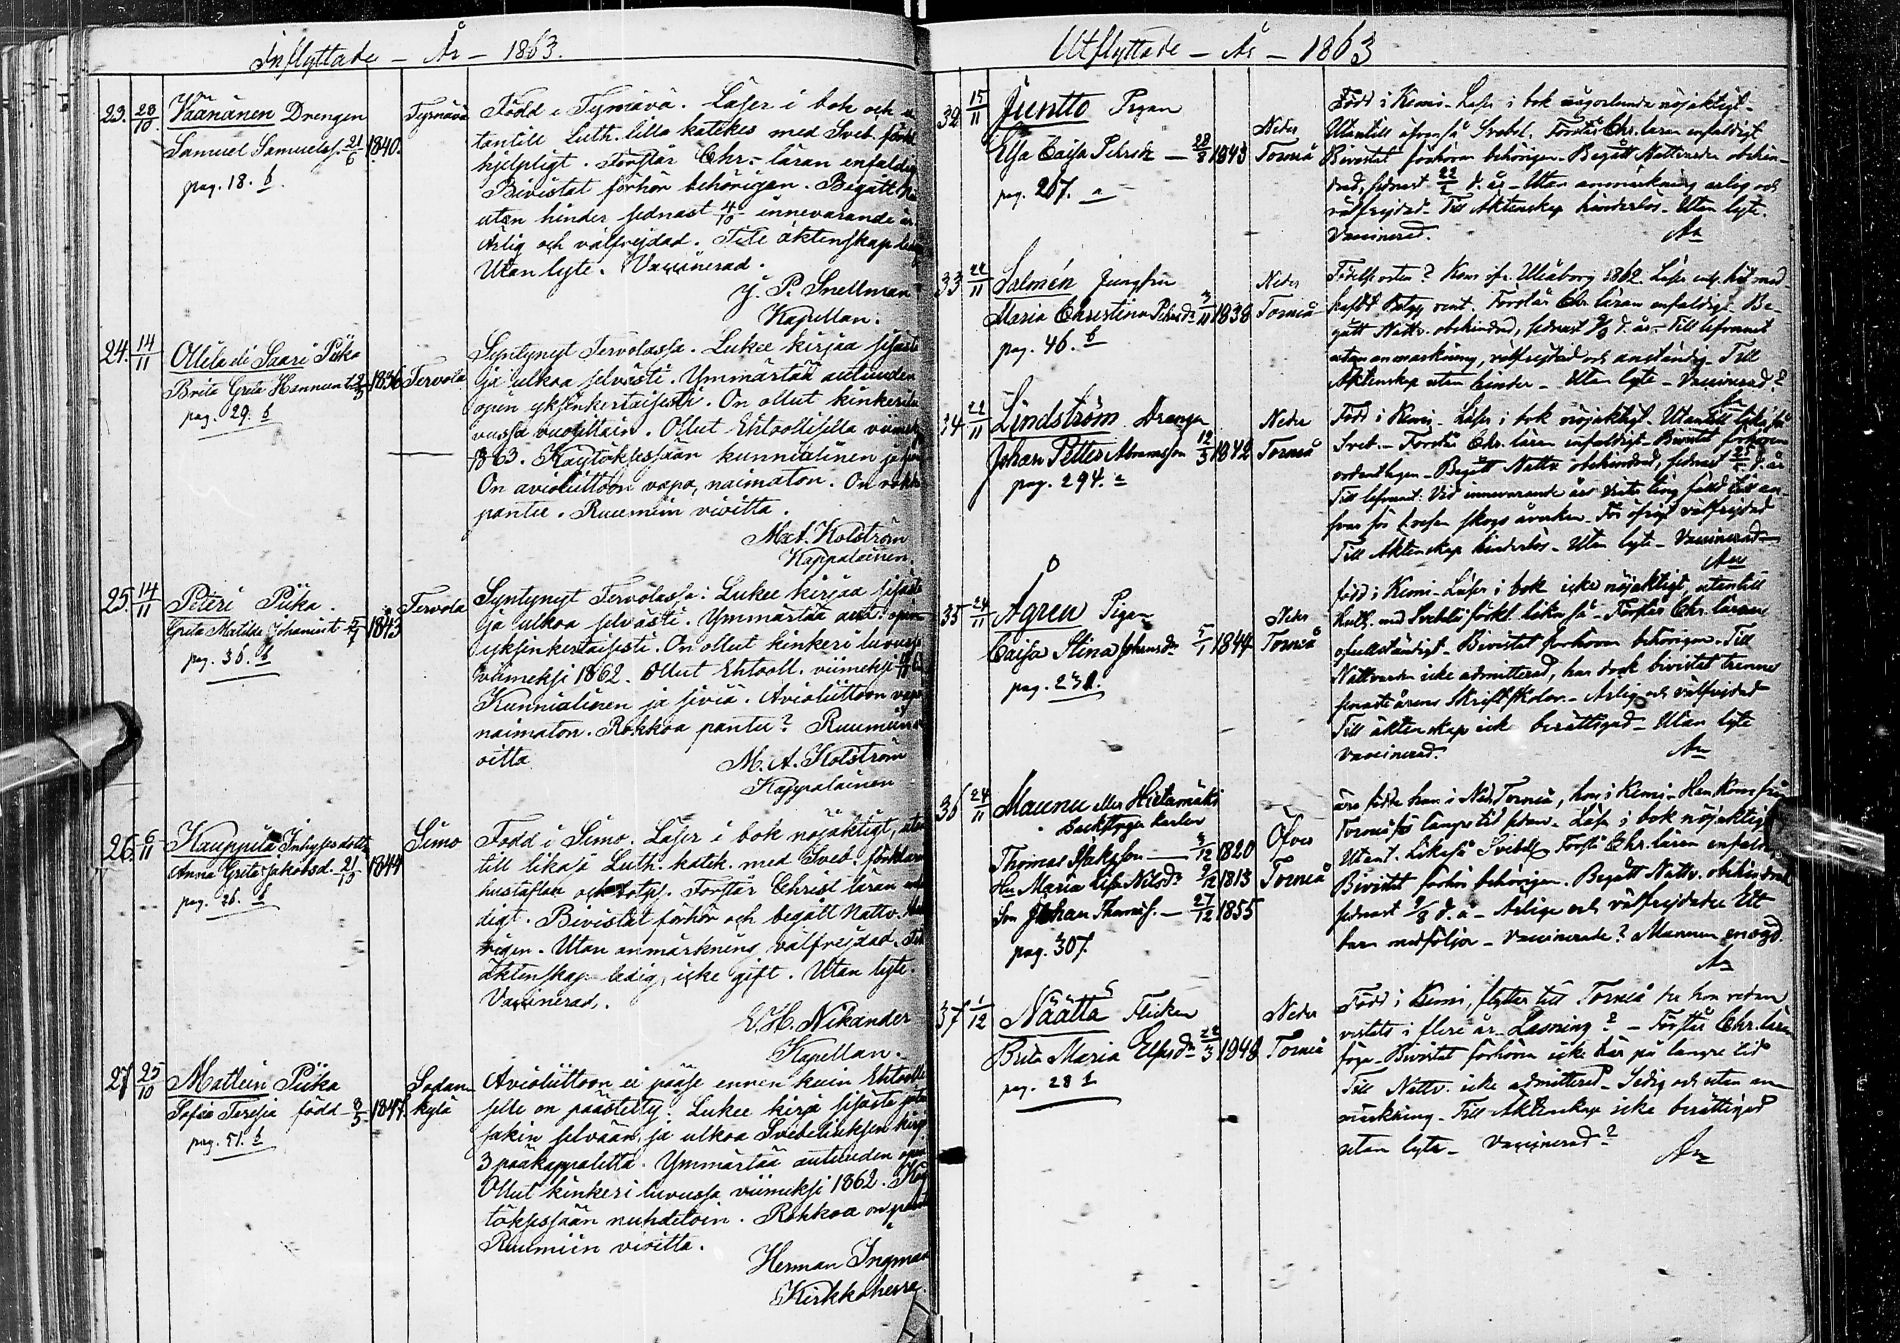 Inflyttade – År – 1863.
23. 28/10 Väänänen Drengen
Samuel Samuelss. 21/6 1840.
pag. 18. b.
Tyrnävä
Född i Tyrnävä. Läser i bok och u
tantill Luth. lilla katekes med Sveb. förkl.
hjelpligt. Förstår Chr. läran enfaldig
Bivistat förhör behörigen. Begått
utan hinder sednast 4/10 innevarande år
Ärlig och välfrejdad. Till äktenskap ledig
Utan lyte. Vaccinerad.
J. P. Snellman
Kapellan.
24. 14/11 Ollila eli Saari Piika
Brita Greta Hannunt. 1836
pag. 29. b
Tervola
Syntynyt Tervolassa. Lukee kirjaa sisästä
ja ulkoa selvästi. Ymmärtää autuuden
opin yksinkertaisesti. On ollut kinkeri
vussa vuosittain. Ollut Ehtoollisella viimeksi
1863. Käytöksessään kunniallinen ja
On avioliittoon vapa, naimaton. On rokko
pantu. Ruumiin viоitta.
M. A. Holström
Kappalainen
25. 14/11 Peteri Piika.
Greta Matilda Johanint. 1843
pag. 36. b
Tervola
Syntynyt Tervolassa: Lukee kirjaa sisästä
ja ulkoa selvästi. Ymmärtää aut. opin
yksinkertaisesti. On ollut kinkeri luvussa
viimeksi 1862. Ollut Ehtooll. viimeksi
Kunniallinen ja siviä. Avioliittoon vapa
naimaton. Rokkoa pantu? Ruumiin
vitta
M. A. Holström
Kappalainen
26. 6/11 Kauppila Inhysesdott.
Anna Greta Jakobsd. 21/10 1844
pag. 26. b
Simo
Född i Simo. Läser i bok nöjaktigt, utan
till likaså Luth. katek. med Sveb. förklar.
hustaflan och Förstår Christ. läran enfal
digt. Bivistat förhör och begått Nattv.
Utan anmärkning välfrejdad. Till
äktenskap ledig, icke gift. Utan lyte.
Vaccinerad.
E. H. Nikander
Kapellan.
27 25/10 Matlein Piika
Sofia Teresia född 8/5 1847
pag. 51. b
Sodan
kylä
Avioliittoon ei pääse ennen kuin Ehtoolli
selle on päästetty. Lukee kirja sisästä
selvään, ja ulkoa Svebeliuksen kirj.
3 pääkappaletta. Ymmärtää autuuden opin
Ollut kinkeri luvussa viimeksi 1862. Käy
töksessään nuhdetoin. Rokkoa on pantu
Ruumiin vioitta.
Herman Ingman
Kirkkoherra.
Utflyttade – År – 1863
32 15/11 Juntto Pigan
Elsa Caisa Pehrsdr – 28/8 1843
pag. 207. a
Neder
Torneå
Född i Kemi – Läser i bok någorlunda nöjaktigt –
Utantill äfvenså Svebel. Förstår Chr. läran enfaldigt
Bivistat förhören behörigen – Begått Nattvarden obehin
drad, sednast d. år – Utan anmärkning ärlig och
välfrejdad – Till Äktenskap hinderlös – Utan lyte.
Vaccinerad.
An
33 22/11 Salmén Jungfru
Maria Christina Pehrsdr 1838
pag. 46. b
Neder
Torneå
Födelseorten? Kom fr. Uleåborg 1862. Läser
Förstår Chr. läran enfaldigt – Be
gått Nattv. obehindrad, sednast d. år – Till
utan anmärkning, välfrejdad och anständig – Till
Äktenskap utan hinder – Utan lyte – Vaccinerad?
An
34 22/11 Lindström Drengen
Johan Petter Abramsson 12/3 1842
pag. 294. a
Neder
Torneå
Född i Kemi – Läser i bok nöjaktigt – Utantill
Sveb. – Förstår Chr. läran enfaldigt – Bivistat förhören
ordentligen – Begått Nattv. obehindrad, sednast d. år
Vid innevarande års ting fäld till an
svar för skogs åverkan – För öfrigt välfrejdad
Till Äktenskap hinderlös – Utan lyte – Vaccinerad
An
35 24/11 Ågren Pigan
Caisa Stina Johansdr 5/1 1844
pag. 231.
Neder
Torneå
född i Kemi – Läser i bok icke nöjaktigt utantill
med Svebelii förkl. lika så – Förstår Chr. läran
ofullständigt – Bivistat förhören behörigen – Till
Nattvarden icke admitterad, har dock bivistat trenne
årens Skriftskolor – Ärlig och välfrejdad
Till äktenskap icke berättigad – Utan lyte
vaccinerad.
An
36 24/11 Maunu eller Hietamäki
Backstuga karlen
Thomas Isaksson – 1820
Hu Maria Lisa Nilsdr 1813
Son Johan Thomass. – 27/12 1855
pag. 307.
Öfver
Torneå
äro födde han i Ned. Torneå, hon i Kemi – Han kom från
Torneå för längre tid sedan – Läsa i bok nöjaktigt
Utant. Likaså Svebel. Förstå Chr. läran enfaldigt
Bivistat förhör behörigen. Begått Nattv. obehindrad
sednast 9/8 d. å – Ärlige och välfrejdade Ett
barn medföljer – Vaccinerade? Mannen
An
37 1/12 Näätä Flickan
Brita Maria Elfsdr 22/3 1848
pag. 28
Neder
Torneå
Född i Kemi, flyttar till Torneå der hon redan
vistats i flere år – Läsning? – Förstår Chr. läran
föga – Bivistat förhören icke här på längre tid
Till Nattv. icke admitterad – Ledig och utan an
märkning – Till Äktenskap icke berättigad
utan lyte – Vaccinerad?
An